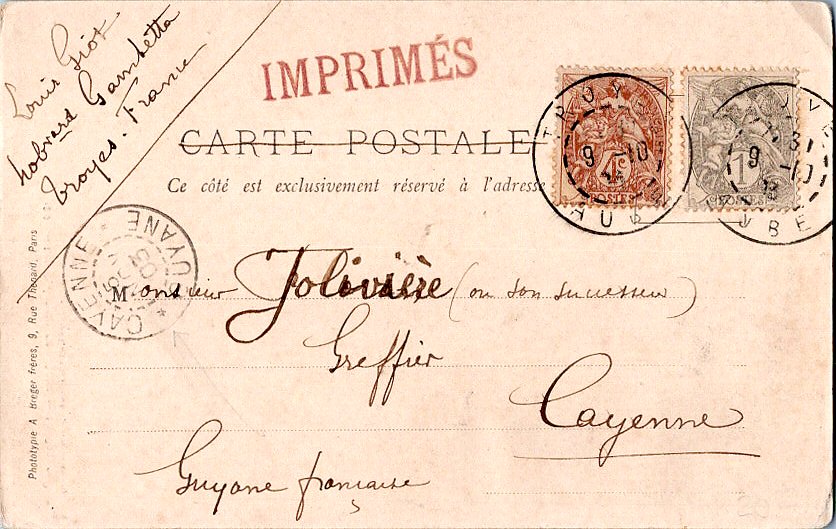 Louis Giot
Gambetta
Troyes. France
IMPRIMÉS
CARTE POSTALE
Ce côté est exclusivement réservé à l'adresse
TROYES
AUBE
9 -10
4c
POSTES
1
POSTES
9 -10
AUBE
CAYENNE
GUYANE
Monsieur Jolivière (ou son successeur)
Greffier
Cayenne
Guyane française
Phototypie A Breger frères, 9, Rue Thénard, Paris